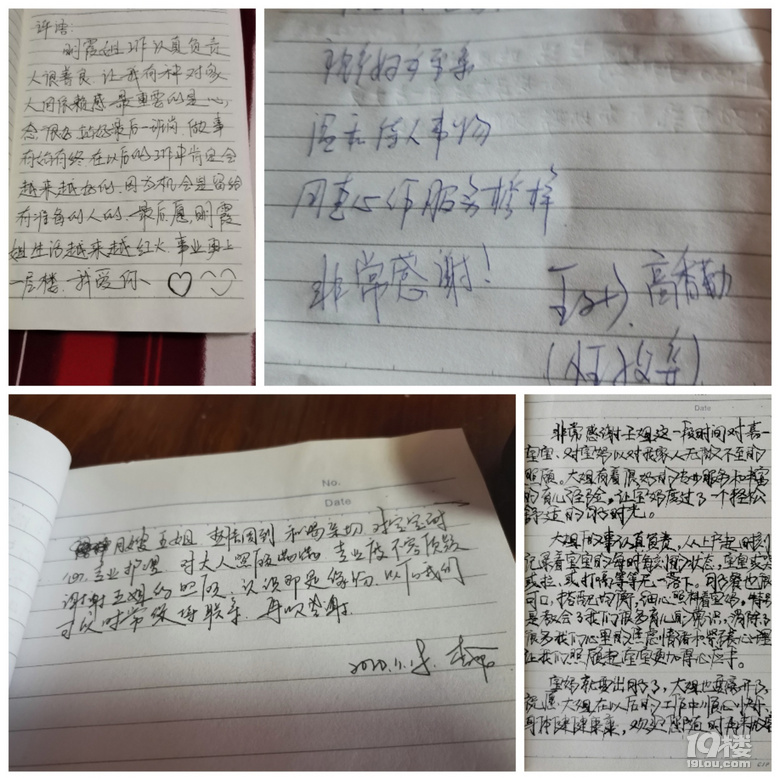 评语:
明霞姐工作认真负责
人很善良.让我有种对家
人同很龍感最重要的是心
态很好站好最后一班岗.做事
有始有终在以后的工作中肯定会
越来越好的.因为机会是留给
有准备的人的.最后愿,明霞
姐生活越来越红火.事业更上
一层楼.我爱你、
温和待人事物
用真心作服务榜样
非常感谢!
高香勤
No.
Date
月嫂王姐 和蔼亲切 对宝宝耐
心专业护理 对大人照顾 专业度不容质疑
谢谢王姐的照顾,认识即是缘份.以后我们
可以时常练络联系.再次感谢.
2020.11.18.
Date
非常感谢王姐这一段时间对喜
宝宝、对宝妈以及对我家人无微不至的
照顾。大姐有着很好的专业服务和丰富
的育儿经验,让宝妈度过了一个轻松
舒适的月子时光。
大姐做事认真负责,从上户起时刻
记录着宝宝的每时每刻的状态,宝宝或哭
或拉,或打嗝等等无一落下。月子餐也很
可口,搭配均衡,细心照料着宝妈,特别
是教会了我们很多育儿的常识,消除了
很多我们心里的焦虑情绪和紧张心理
让我们照顾起宝宝更加得心应手。
宝妈就要出月子了,大姐也要离开了,
祝愿大姐在以后的工作中顺心顺利,
身体健健康康,欢迎随时再来
19楼
19lou.com